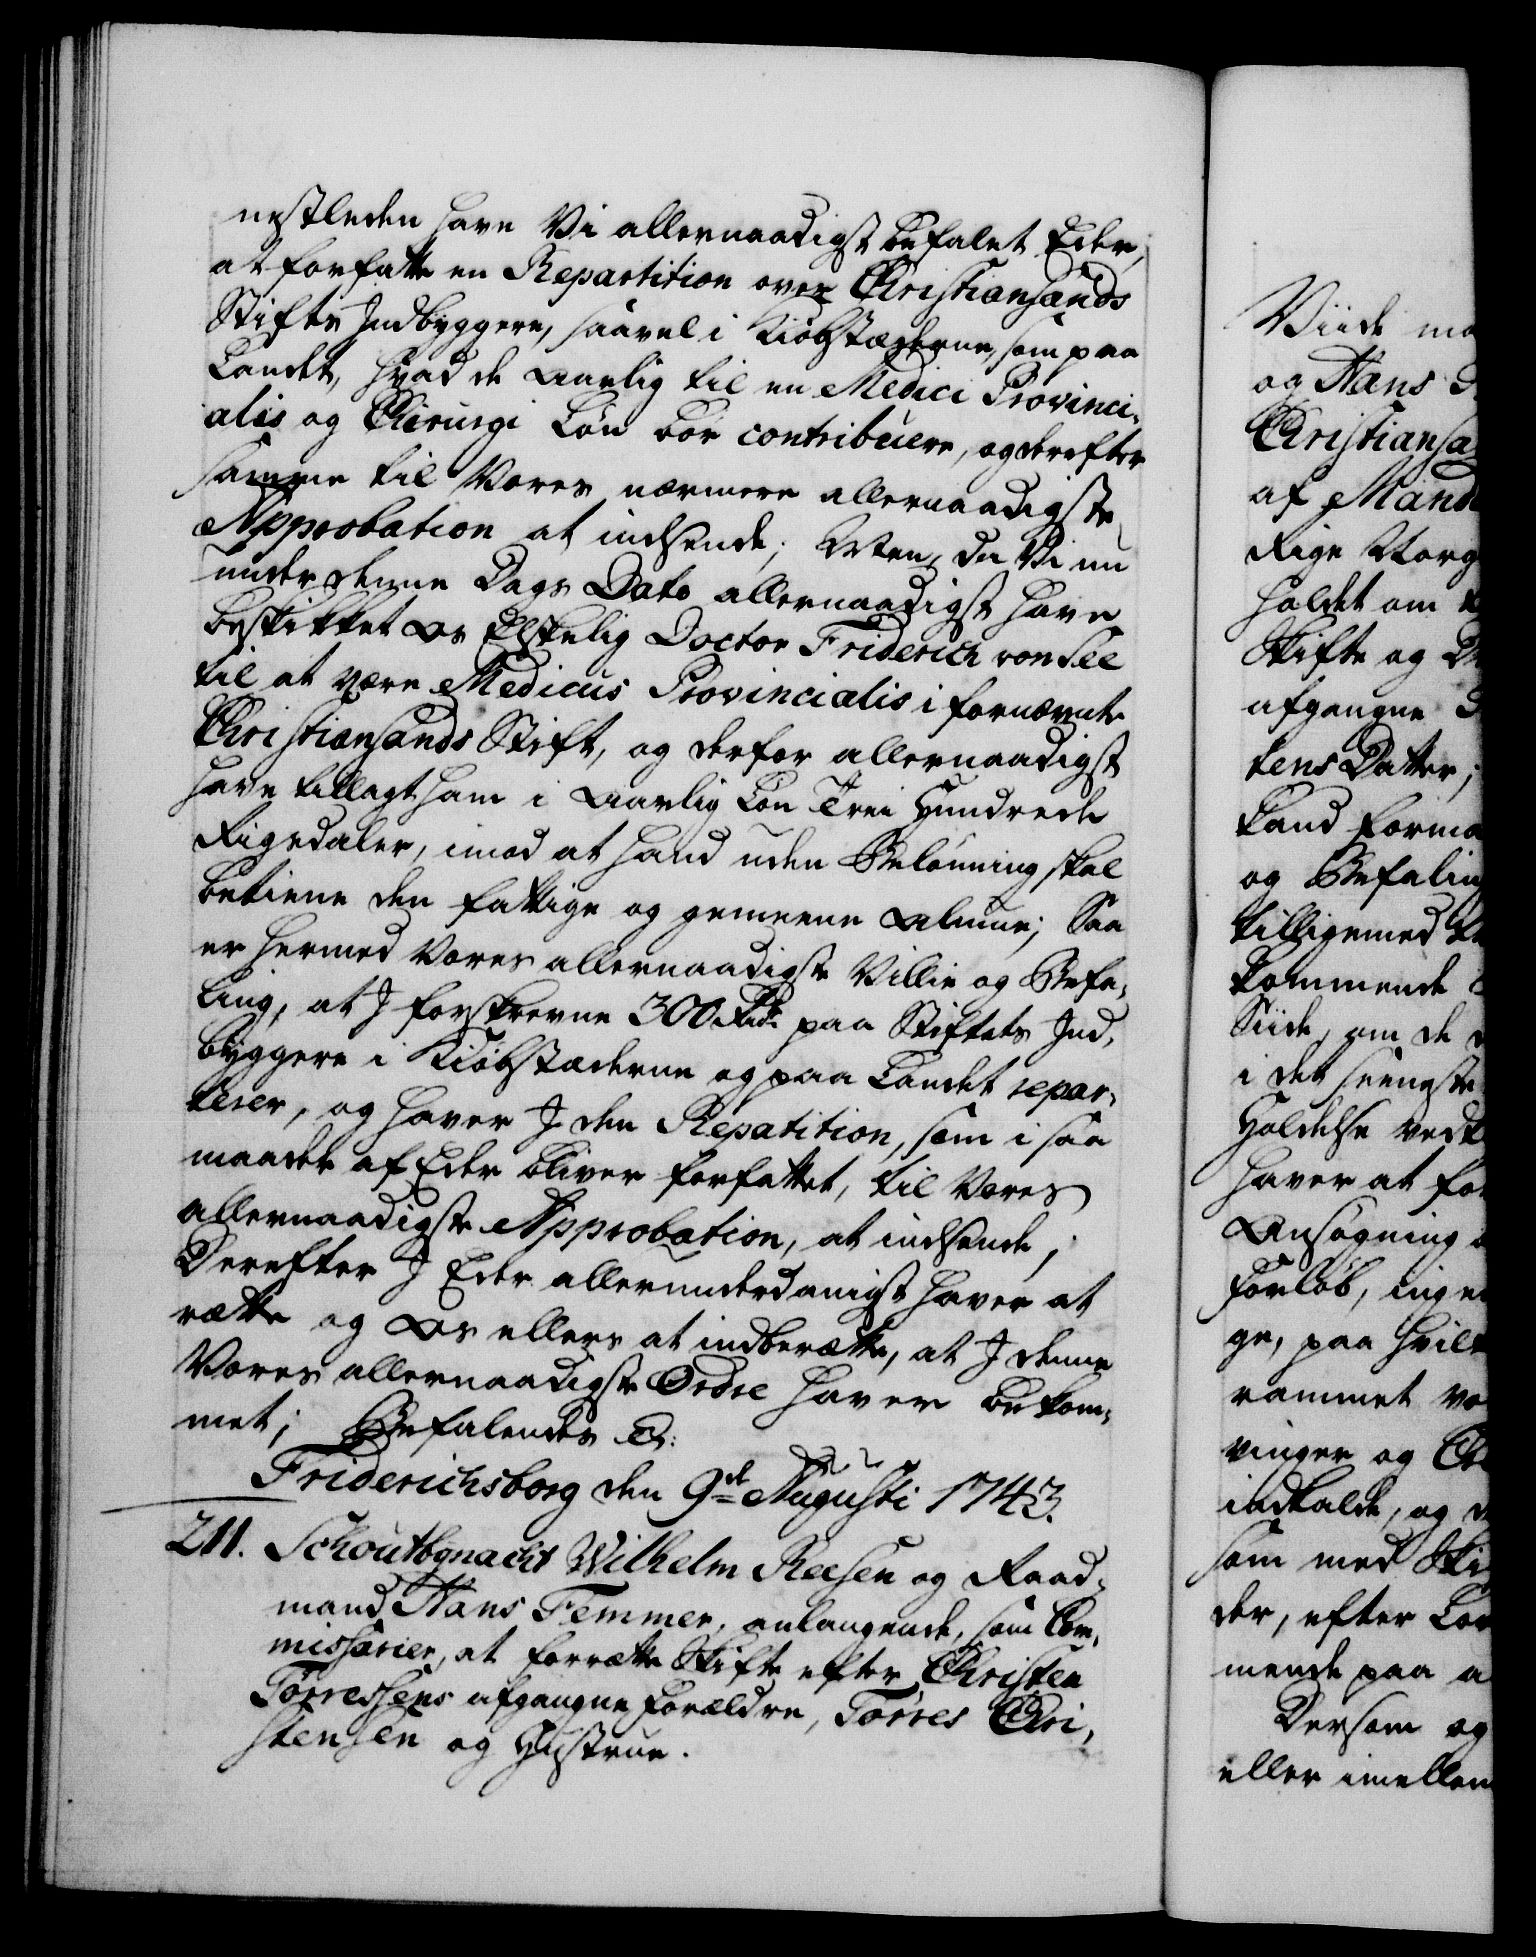 nestleden have Vi allernaadigst befalet Eder,
at forfatte en Repartition over Christiansands
Stifts Indbyggere, saavel i Kiøbstæderne, som paa
Landet, hvad de aarlig til en Medici Provinci-
alis og Chirurgi Løn bør contribuere, og derefter
samme til Vores nærmere allernaadigste
Approbation at indsende; Men, da Vi nu
under denne Dags Dato allernaadigst have
beskikket os Elskelig Doctor Friderich von See
til at være Medicus Provincialis i fornævnte
Christiansands Stift, og derfor allernaadigst
have tillagt ham i aarlig Løn Trei Hundrede
Rigsdaler, imod at hand uden Belønning skal
betiene den fattige og gemeene Almue; Saa
er hermed Vores allernaadigste Villie og Befa-
ling, at I forskrevne 300 Rdr. paa Stiftets Ind-
byggere i Kiøbstæderne og paa Landet repar-
terer, og haver I den Repatition, som i saa
maade af Eder bliver forfattet, til Vores
allernaadigste Approbation, at indsende;
Derefter I Eder allerunderdanigst haver at
rætte og Os ellers at indberætte, at I denne
Vores allernaadigste Ordre haver bekom-
met; Befalendes &:
Friderichsborg den 9de Augusti 1743.
211. Schoutbynacht Wilhelm Reesen og Raad-
mand Hans Femmer, anlangende, som Com-
missarier, at forrette Skifte efter Christen
Tørressens afgangne Forældre, Tørres Chri-
stensen og Hustrue.
Viide
og Hans
af
Rige
holdet om
Skifte og
afgangne
tens Datter;
Land
og
tilligemed
kommende
Siide, om de
i det
Holdelse
haver at
Ansøgning
Forløb,
ge, paa
rammet
vinger og
indkalde, og
som med
der, efter
mende paa
Dersom og
eller